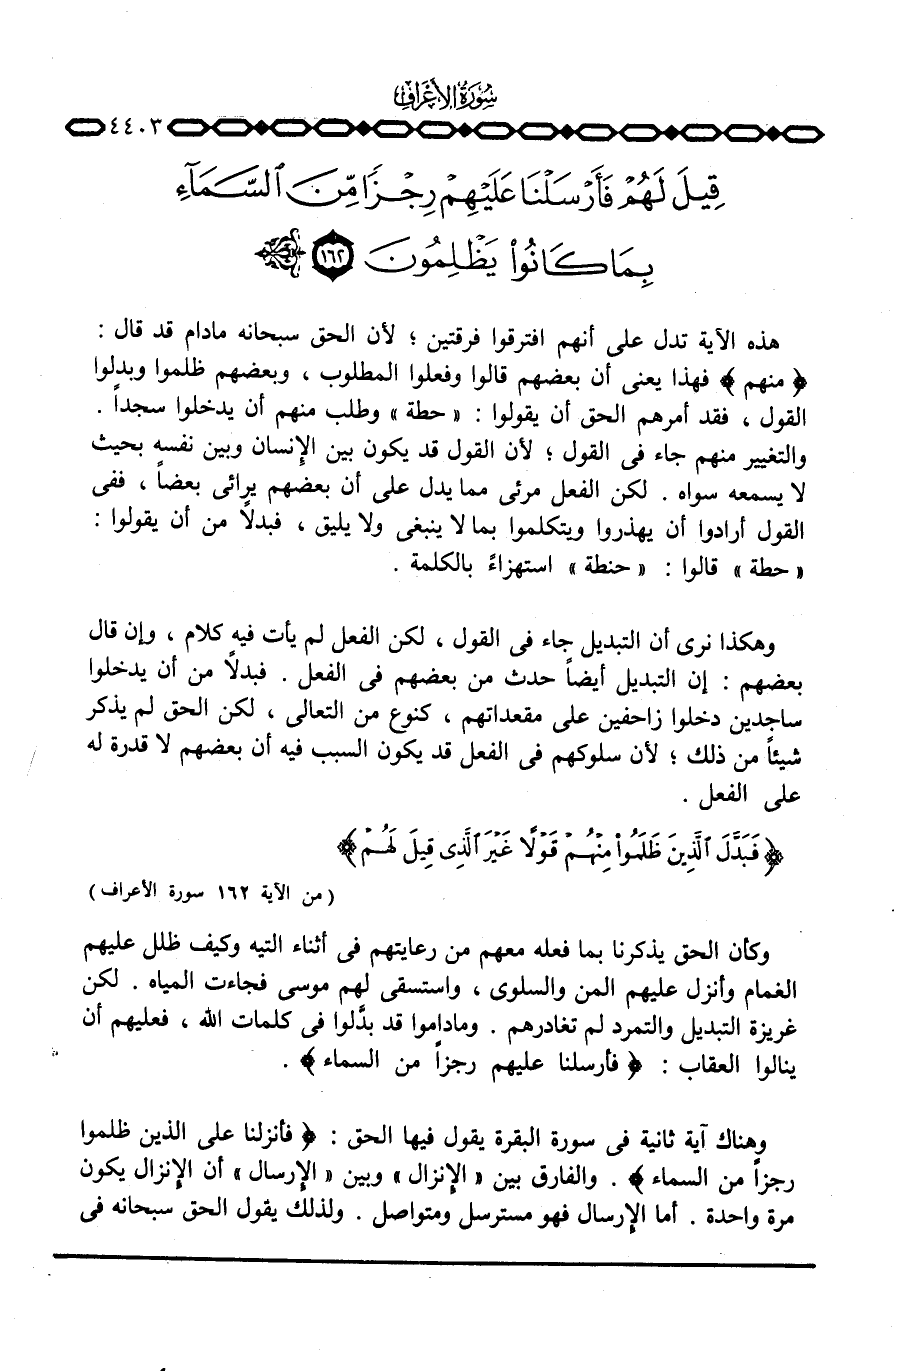 سُورَةُ الأَعْرَافِ
٤٤٠٣
قِيلَ لَهُمْ فَأَرْسَلْنَا عَلَيْهِمْ رِجْزًا مِّنَ ٱلسَّمَآءِ
بِمَا كَانُوا۟ يَظْلِمُونَ ١٦٢
هذه الآية تدل على أنهم افترقوا فرقتين ؛ لأن الحق سبحانه مادام قد قال :
﴿ منهم ﴾ فهذا يعنى أن بعضهم قالوا وفعلوا المطلوب ، وبعضهم ظلموا وبدلوا
القول ، فقد أمرهم الحق أن يقولوا : « حطة » وطلب منهم أن يدخلوا سجداً .
والتغيير منهم جاء فى القول ؛ لأن القول قد يكون بين الإنسان وبين نفسه بحيث
لا يسمعه سواه . لكن الفعل مرئى مما يدل على أن بعضهم يرائى بعضاً ، ففى
القول أرادوا أن يهذروا ويتكلموا بما لا ينبغى ولا يليق ، فبدلاً من أن يقولوا :
« حطة » قالوا : « حنطة » استهزاءً بالكلمة .
وهكذا نرى أن التبديل جاء فى القول ، لكن الفعل لم يأت فيه كلام ، وإن قال
بعضهم : إن التبديل أيضاً حدث من بعضهم فى الفعل . فبدلاً من أن يدخلوا
ساجدين دخلوا زاحفين على مقعداتهم ، كنوع من التعالى ، لكن الحق لم يذكر
شيئاً من ذلك ؛ لأن سلوكهم فى الفعل قد يكون السبب فيه أن بعضهم لا قدرة له
على الفعل .
﴿ فَبَدَّلَ ٱلَّذِينَ ظَلَمُوا۟ مِنْهُمْ قَوْلًا غَيْرَ ٱلَّذِى قِيلَ لَهُمْ ﴾
( من الآية ١٦٢ سورة الأعراف )
وكأن الحق يذكرنا بما فعله معهم من رعايتهم فى أثناء التيه وكيف ظلل عليهم
الغمام وأنزل عليهم المن والسلوى ، واستسقى لهم موسى فجاءت المياه . لكن
غريزة التبديل والتمرد لم تغادرهم . وماداموا قد بدَّلوا فى كلمات الله ، فعليهم أن
ينالوا العقاب : ﴿ فأرسلنا عليهم رجزاً من السماء ﴾ .
وهناك آية ثانية فى سورة البقرة يقول فيها الحق : ﴿ فأنزلنا على الذين ظلموا
رجزاً من السماء ﴾ . والفارق بين « الإنزال » وبين « الإرسال » أن الإنزال يكون
مرة واحدة . أما الإرسال فهو مسترسل ومتواصل . ولذلك يقول الحق سبحانه فى